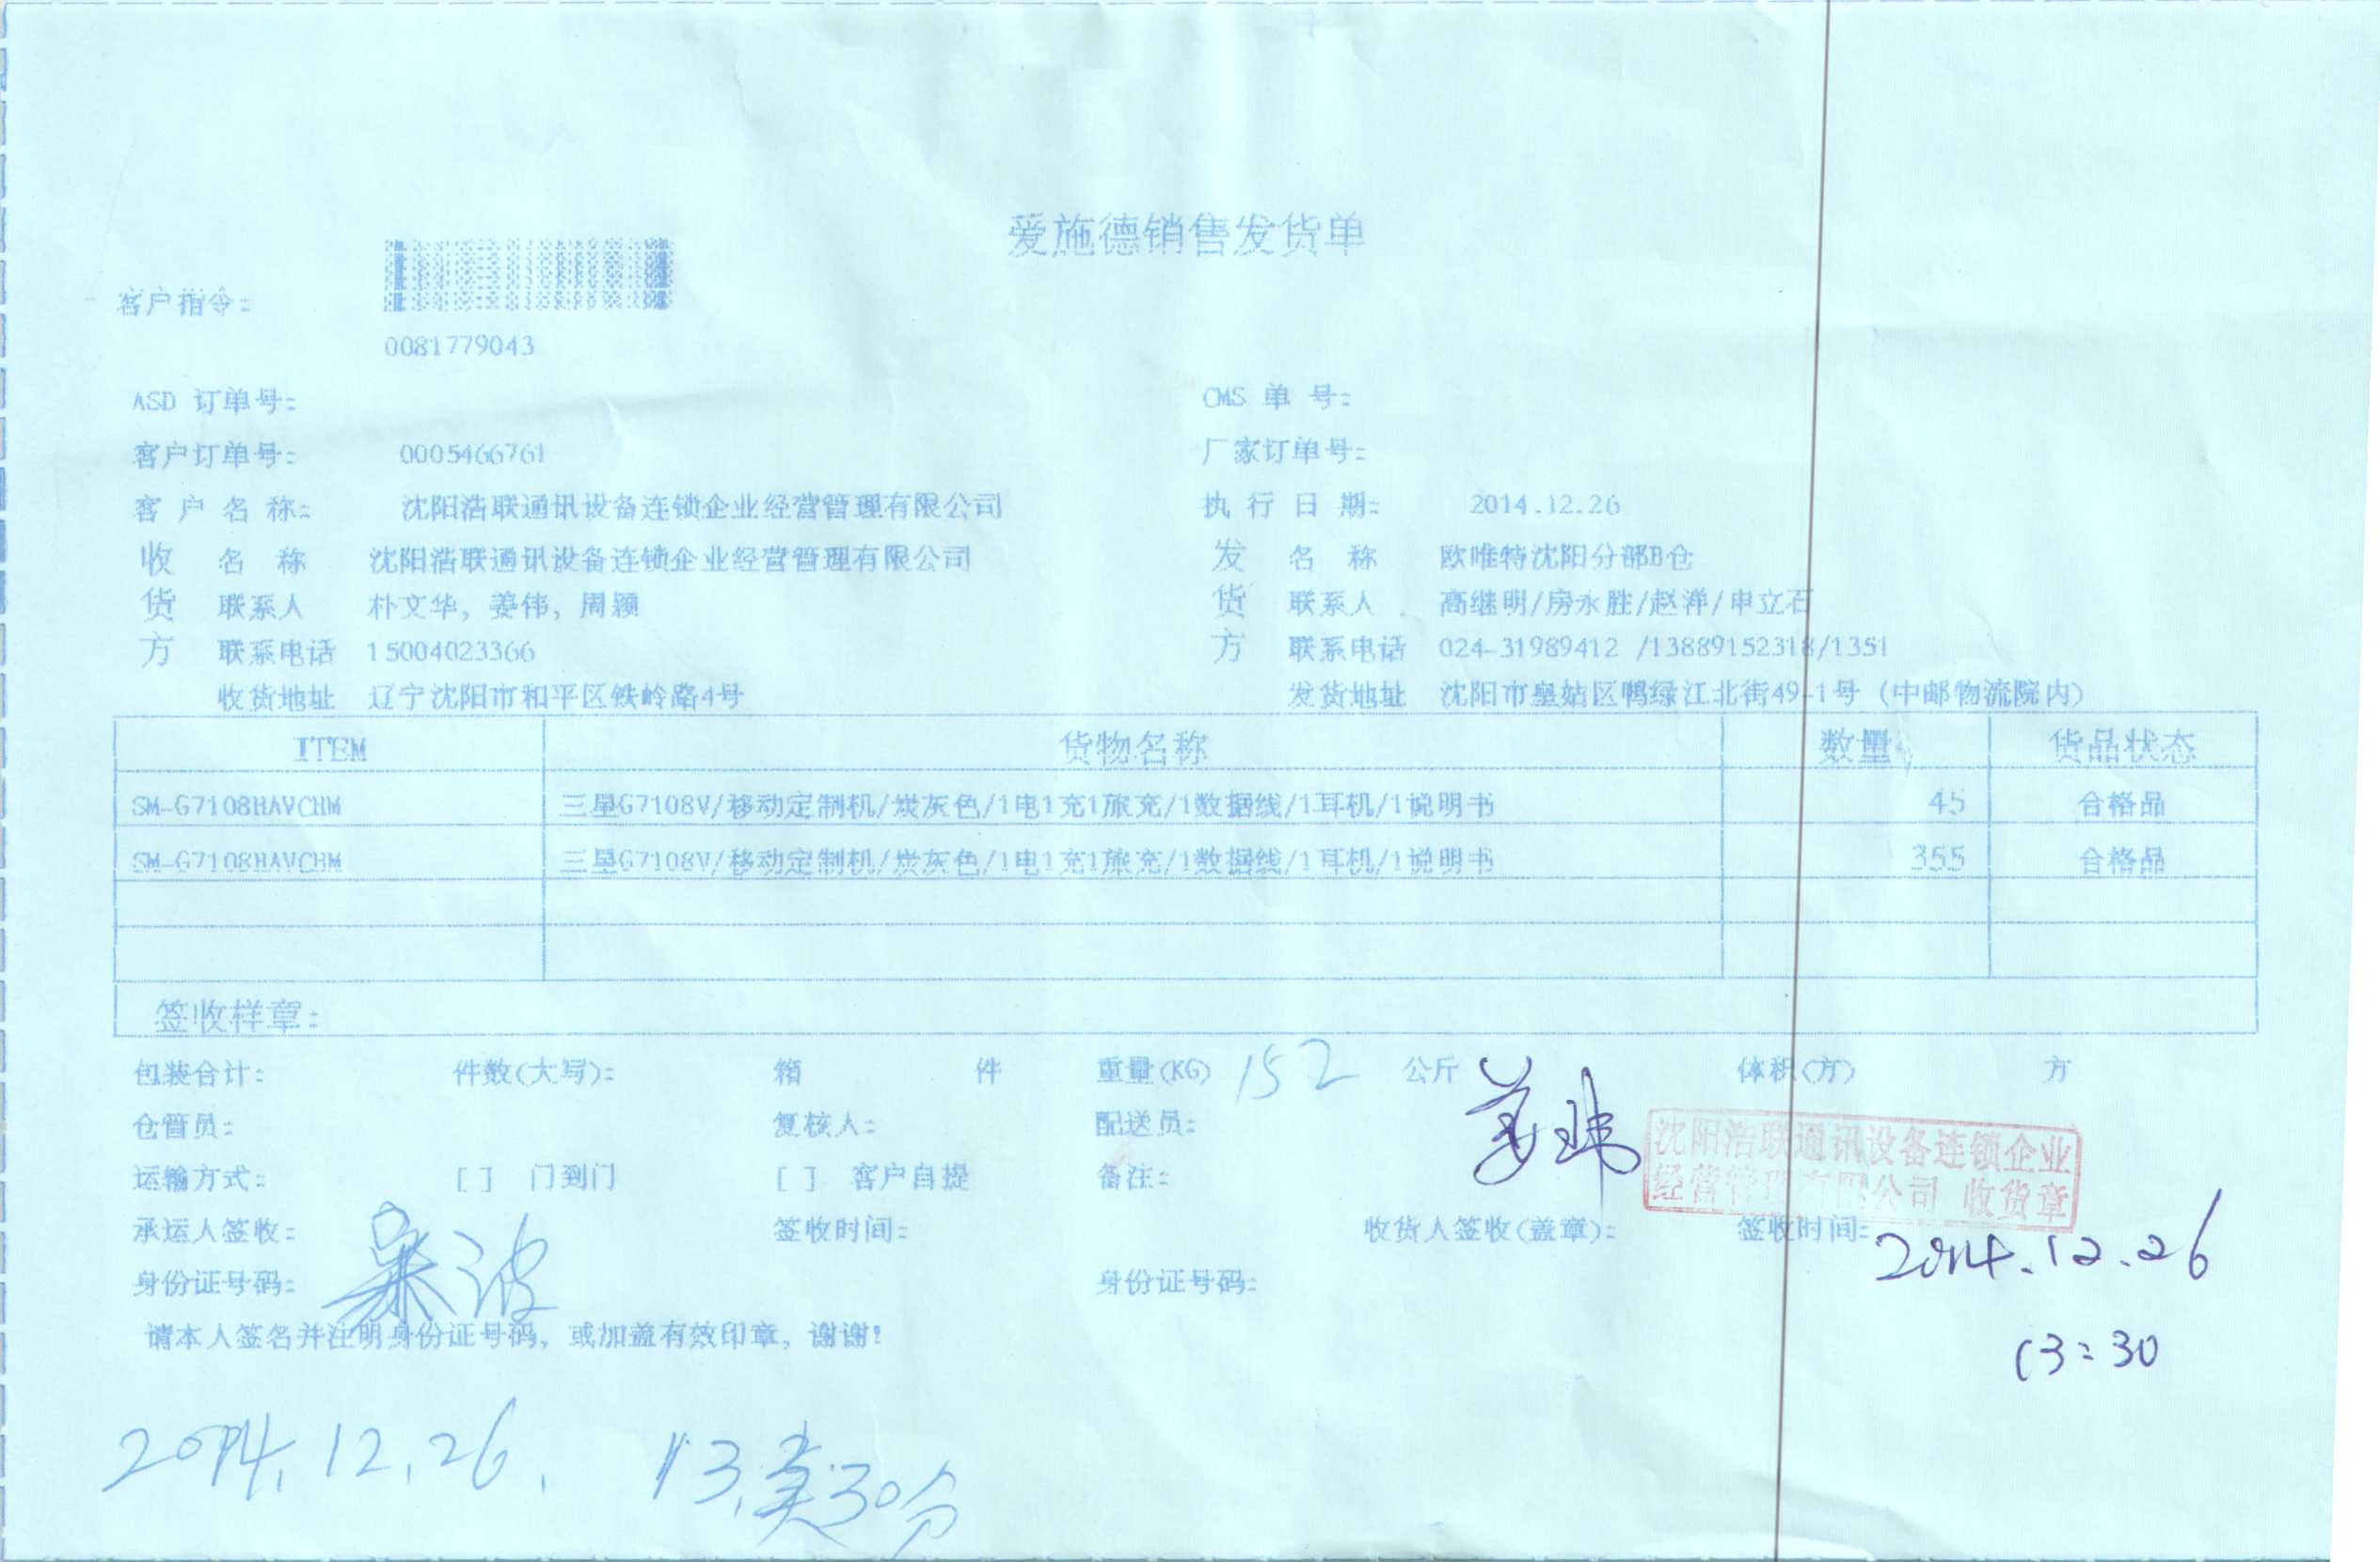 爱施德销售发货单
客户指令:
0081779043
ASD 订单号:
CMS 单 号:
客户订单号: 0005466761
厂家订单号:
客 户 名 称: 沈阳浩联通讯设备连锁企业经营管理有限公司
执 行 日 期: 2014.12.26
收 名 称 沈阳浩联通讯设备连锁企业经营管理有限公司
发 名 称 欧唯特沈阳分部B仓
货 联系人 朴文华, 姜伟, 周颖
货 联系人 高继明/房永胜/赵洋/申立石
方 联系电话 15004023366
方 联系电话 024-31989412 /13889152318/1351
收货地址 辽宁沈阳市和平区铁岭路4号
发货地址 沈阳市皇姑区鸭绿江北街49-1号 (中邮物流院内)
ITEM 货物名称 数量 货品状态
SM-G7108HAVCHM 三星G7108V/移动定制机/炭灰色/1电1充1旅充/1数据线/1耳机/1说明书 45 合格品
SM-G7108HAVCHM 三星G7108V/移动定制机/炭灰色/1电1充1旅充/1数据线/1耳机/1说明书 355 合格品
签收样章:
包装合计: 件数(大写): 箱 件 重量(KG) 152 公斤 体积(方) 方
仓管员: 复核人: 配送员:
姜玮
沈阳浩联通讯设备连锁企业
经营管理有限公司 收货章
运输方式: [ ] 门到门 [ ] 客户自提 备注:
承运人签收: 签收时间: 收货人签收(盖章): 签收时间:
2014.12.26
身份证号码: 身份证号码:
请本人签名并注明身份证号码, 或加盖有效印章, 谢谢!
13:30
2014.12.26. 13 30分